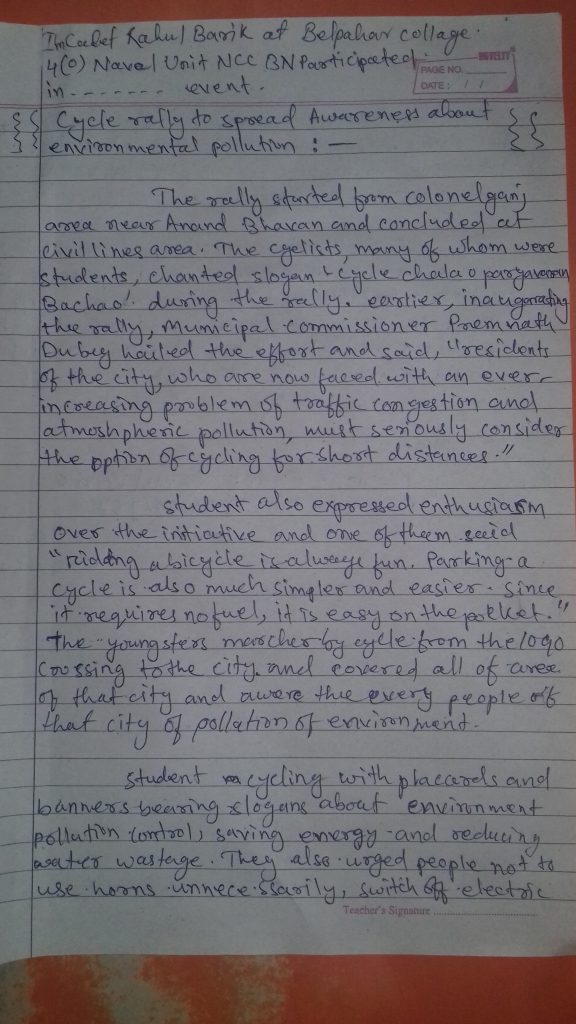 Im Cadet Rahul Barik at Belpahar collage.
4(O) Naval Unit NCC BN Participated
in - - - - - - - event.
PAGE NO.
DATE: / /
Cycle rally to spread Awareness about
environmental pollution : —
The rally started from colonelganj
area near Anand Bhavan and concluded at
civil lines area. The cyclists, many of whom were
students, chanted slogan 'cycle chalao paryavaran
Bachao'. during the rally. earlier, inaugarating
the rally, Municipal commissioner Premnath
Dubey hailed the effort and said, "residents
of the city, who are now faced with an ever-
increasing problem of traffic congestion and
atmoshpheric pollution, must seriously consider
the option of cycling for short distances."
student also expressed enthusiasm
over the initiative and one of them said
"ridding a bicycle is always fun. Parking a
cycle is also much simpler and easier. since
it requires no fuel, it is easy on the pocket."
The youngsters marcher by cycle from the logo
crossing to the city. and covered all of area
of that city and awere the every people of
that city of pollation of environment.
student cycling with placcards and
banners bearing slogans about environment
pollution control, saving energy and reducing
water wastage. They also urged people not to
use horns unnece-ssarily, switch off electric
Teacher's Signature